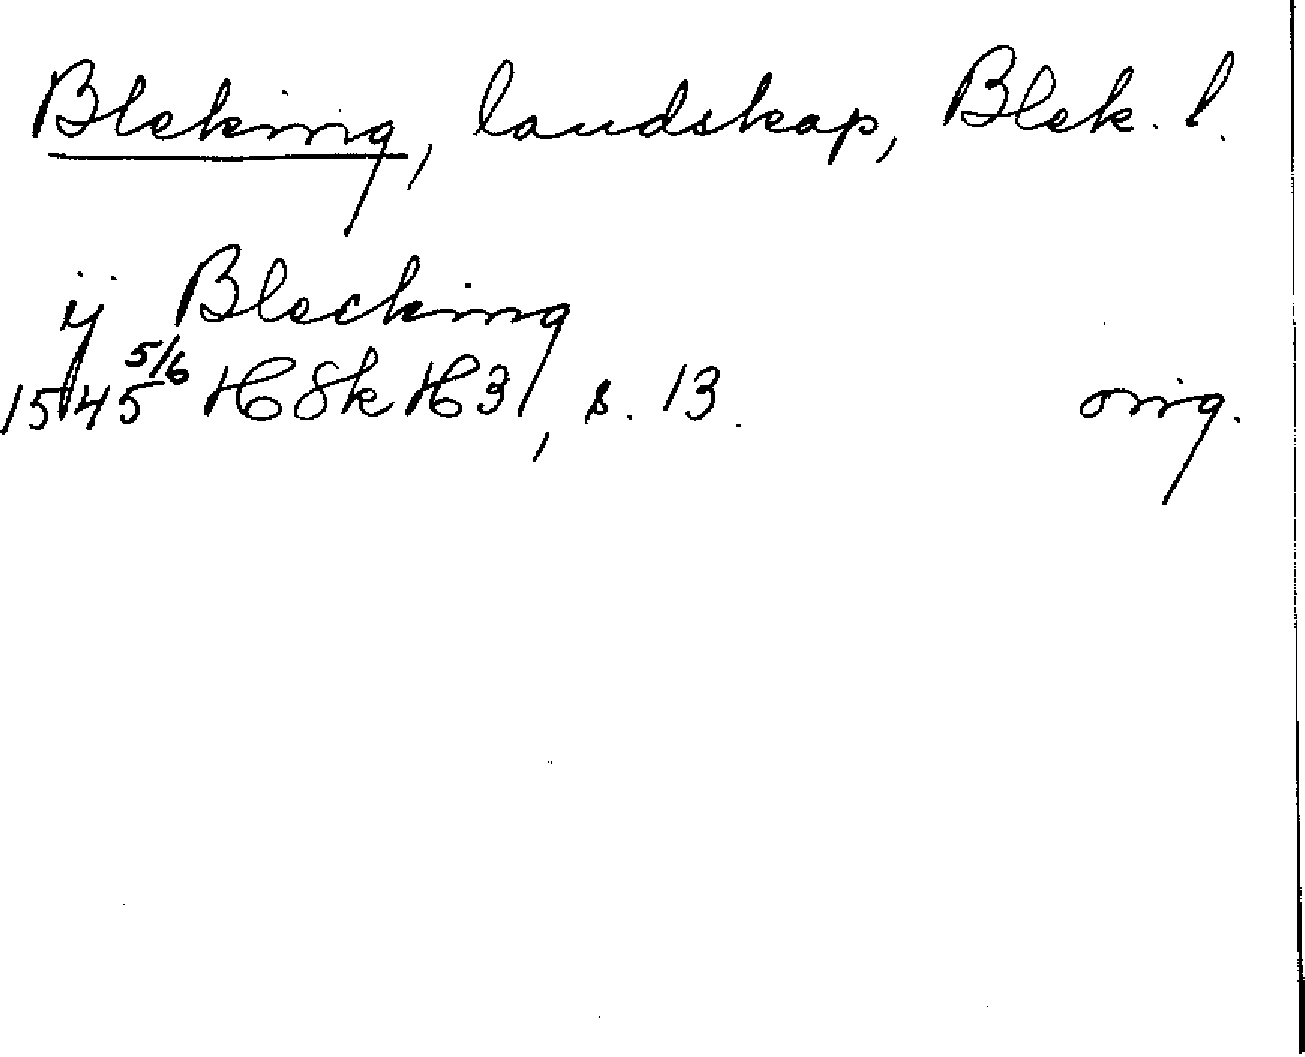 Bleking, landskap, Blek. l.
ij Blecking
1545 5/6 HSkH3, s. 13. orig.